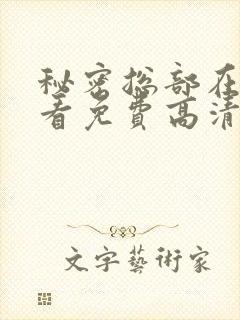 秘密总部在
看免费高清
文字藝術家